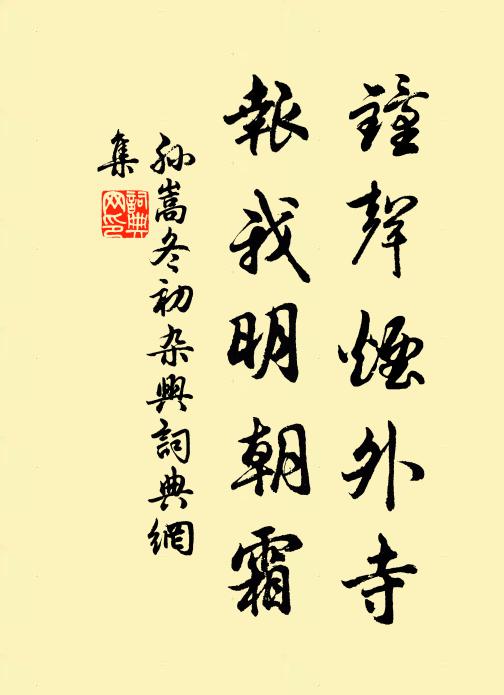 鐘聲煙外寺
報我明朝霜
孫嵩冬初杂興詞典網
集
詞典
网印